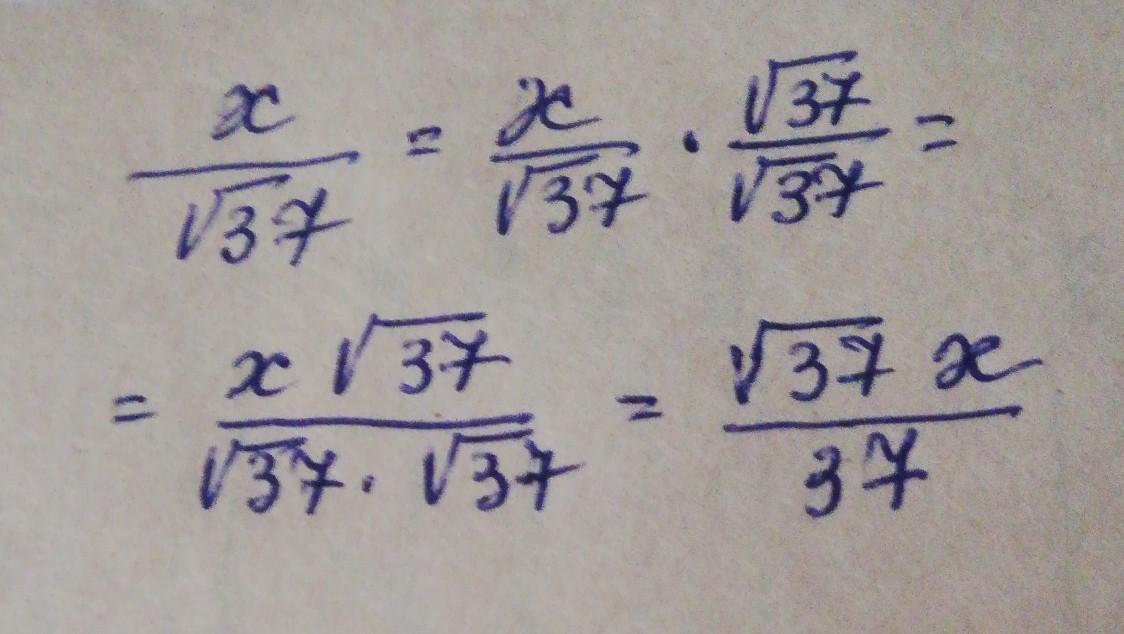 x/√37 = x/√37 · √37/√37 =
= x√37/√37 · √37 = √37 x/37